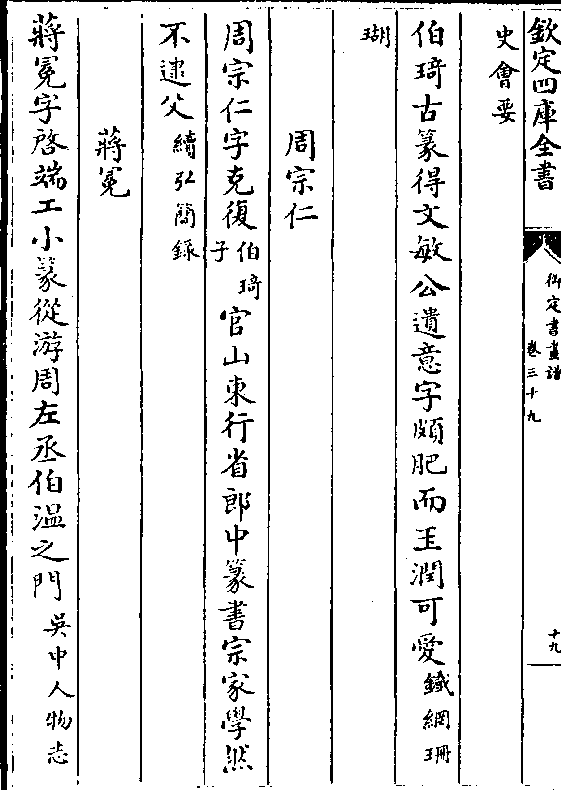 欽定四庫全書
御定書畫譜
卷三十九
十九
史會要
伯琦古篆得文敏公遺意字頗肥而玉潤可愛鐵網珊
瑚
周宗仁
周宗仁字克復伯琦子官山東行省郎中篆書宗家學然
不逮父續弘簡録
蔣冕
蔣冕字啓端工小篆從游周左丞伯温之門吳中人物志